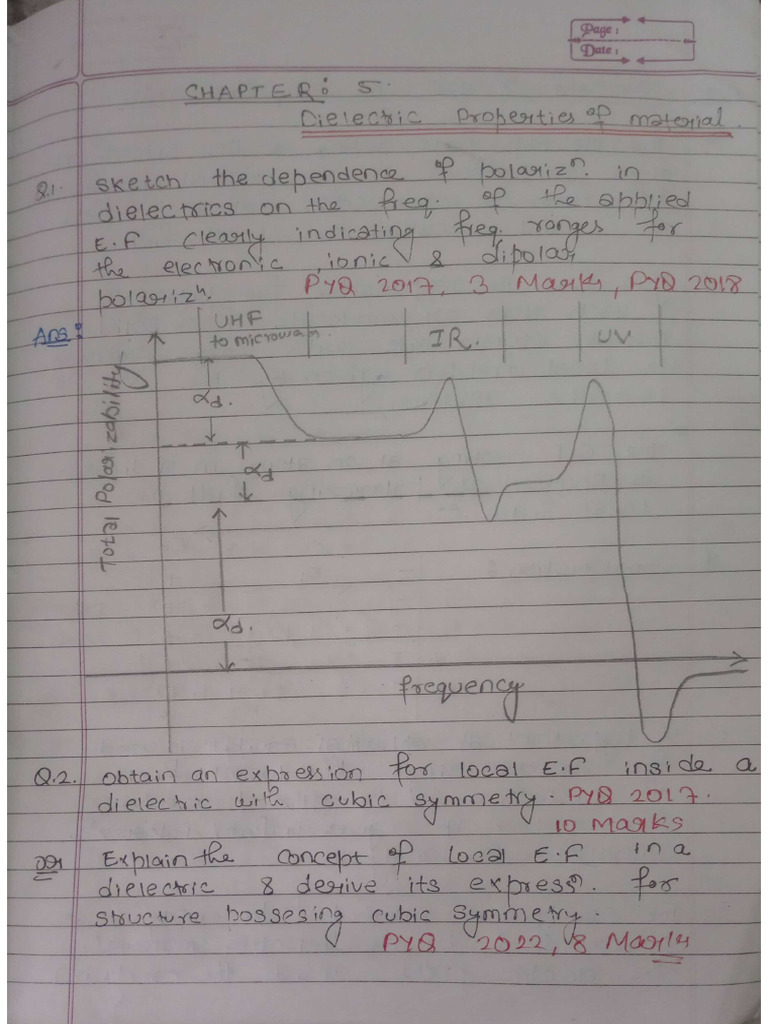 Page :
Date :
CHAPTER: 5.
Dielectric Properties of material.
Q.1. Sketch the dependence of polarizⁿ. in
dielectrics on the freq. of the applied
E.F clearly indicating freq. ranges for
the electronic, ionic & dipolar
polarizⁿ. PYQ 2017, 3 Marks, PYQ 2018
Ans:
UHF
to microwave
IR.
UV
Total Polarizability
αd.
αd
αd.
frequency
Q.2. Obtain an expression for local E.F inside a
dielectric with cubic symmetry. PYQ 2017.
10 Marks
OR Explain the concept of local E.F in a
dielectric & derive its expressⁿ. for
structure possesing cubic symmetry.
PYQ 2022, 8 Marks